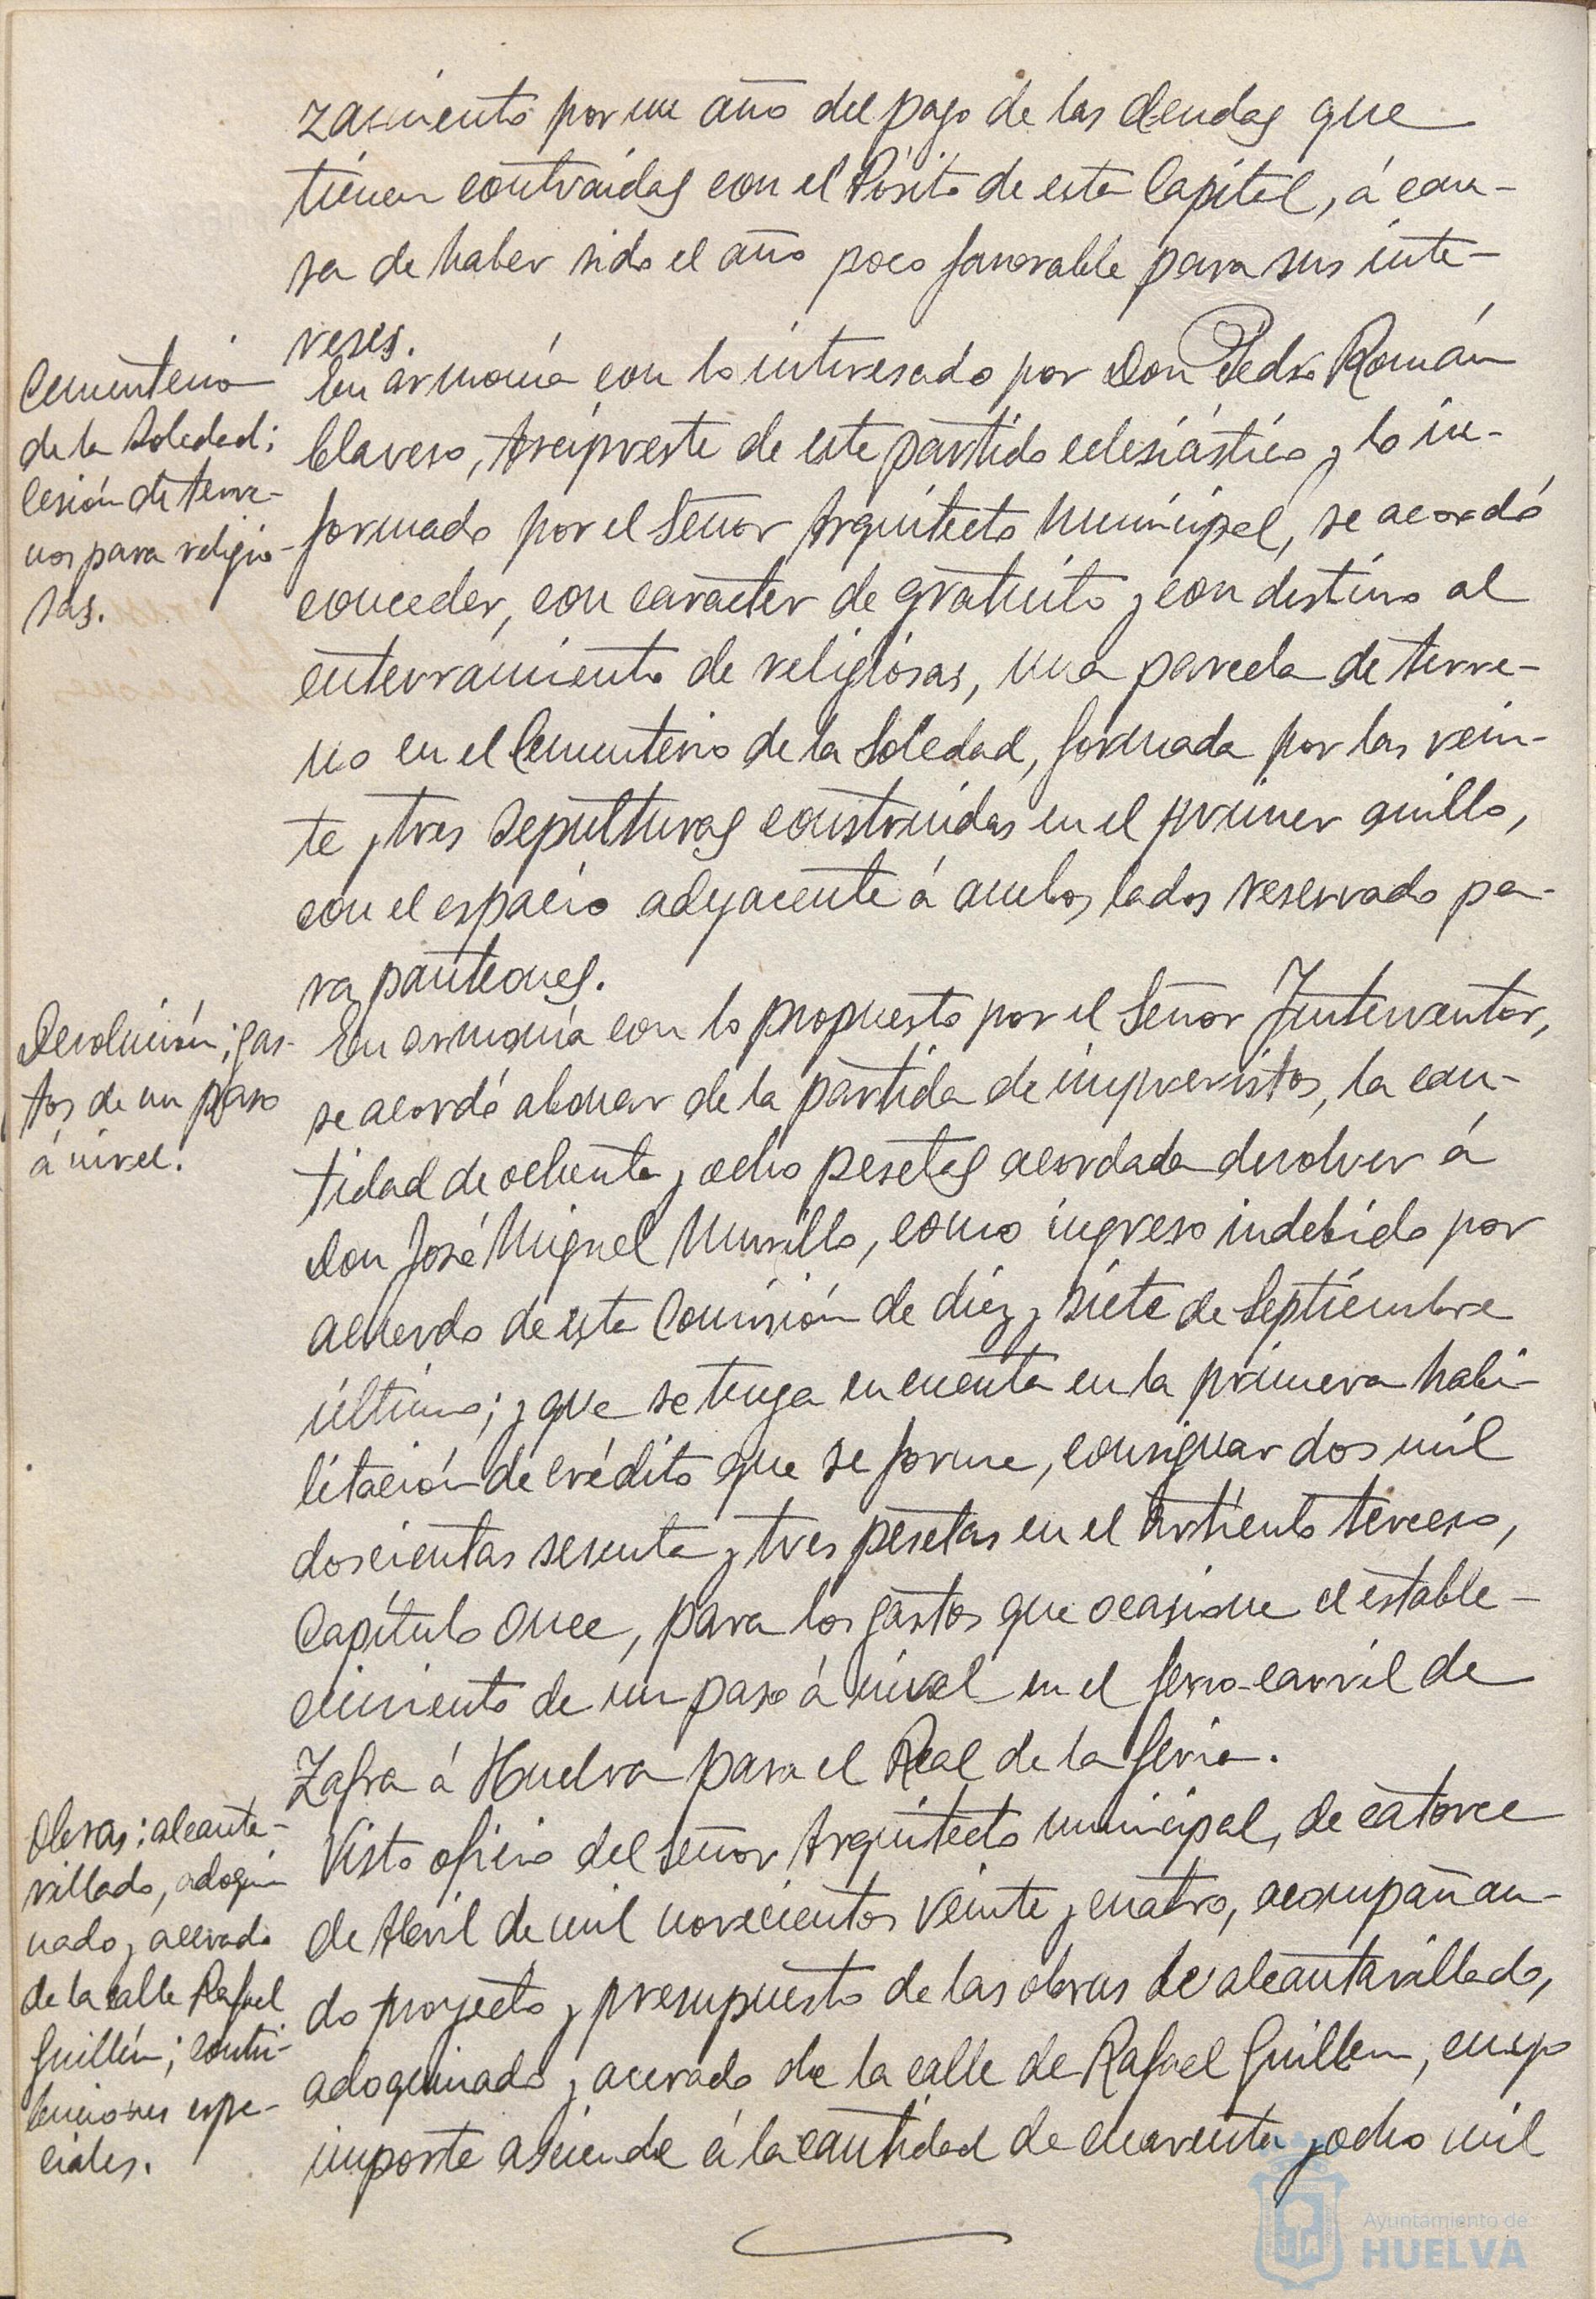 zamiento por un año del pago de las deudas que
tienen contraidas con el Pósito de esta Capital, á cau-
sa de haber sido el año poco favorable para sus inte-
reses.
Cementerio
de la Soledad;
cesión de terre-
nos para religio-
sas.
En armonía con lo interesado por Don Pedro Román
Clavero, Arcipreste de este partido eclesiástico y lo in-
formado por el Señor Arquitecto Municipal, se acordó
conceder, con carácter de gratuito y con destino al
enterramiento de religiosas, una parcela de terre-
no en el Cementerio de la Soledad, formada por las vein-
te y tres sepulturas construidas en el primer anillo,
con el espacio adyacente á ambos lados reservado pa-
ra panteones.
Devolución; gas-
tos de un paso
á nivel.
En armonía con lo propuesto por el Señor Interventor,
se acordó abonar de la partida de imprevistos, la can-
tidad de ochenta y ocho pesetas acordada devolver á
Don José Miguel Murillo, como ingreso indebido por
acuerdo de esta Comisión de diez y siete de Septiembre
último; y que se tenga en cuenta en la primera habi-
litación de crédito que se forme, consignar dos mil
doscientas sesenta y tres pesetas en el Artículo tercero,
Capítulo once, para los gastos que ocasione el estable-
cimiento de un paso á nivel en el ferro-carril de
Zafra á Huelva para el Real de la feria.
Obras: alcanta-
rillado, adoqui-
nado y acerado
de la calle Rafael
Guillén; contri-
buciones espe-
ciales.
Visto oficio del Señor Arquitecto municipal, de catorce
de Abril de mil novecientos veinte y cuatro, acompañan-
do proyecto y presupuesto de las obras de alcantarillado,
adoquinado y acerado de la calle de Rafael Guillen, cuyo
importe asciende á la cantidad de cuarenta y ocho mil
Ayuntamiento de
HUELVA